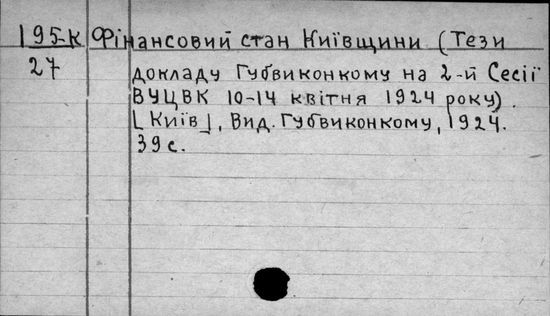 195-К Фінансовий стан Київщини (Тези
27 докладу Губвиконкому на 2-й Сесії
ВУЦВК 10-14 квітня 1924 року).
[Київ], Вид. Губвиконкому, 1924.
39 с.